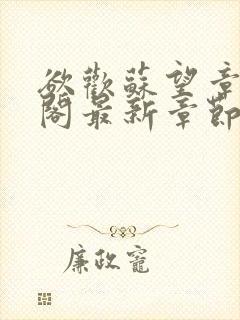 欲歡蘇望章
閣最新章節
廉政寵